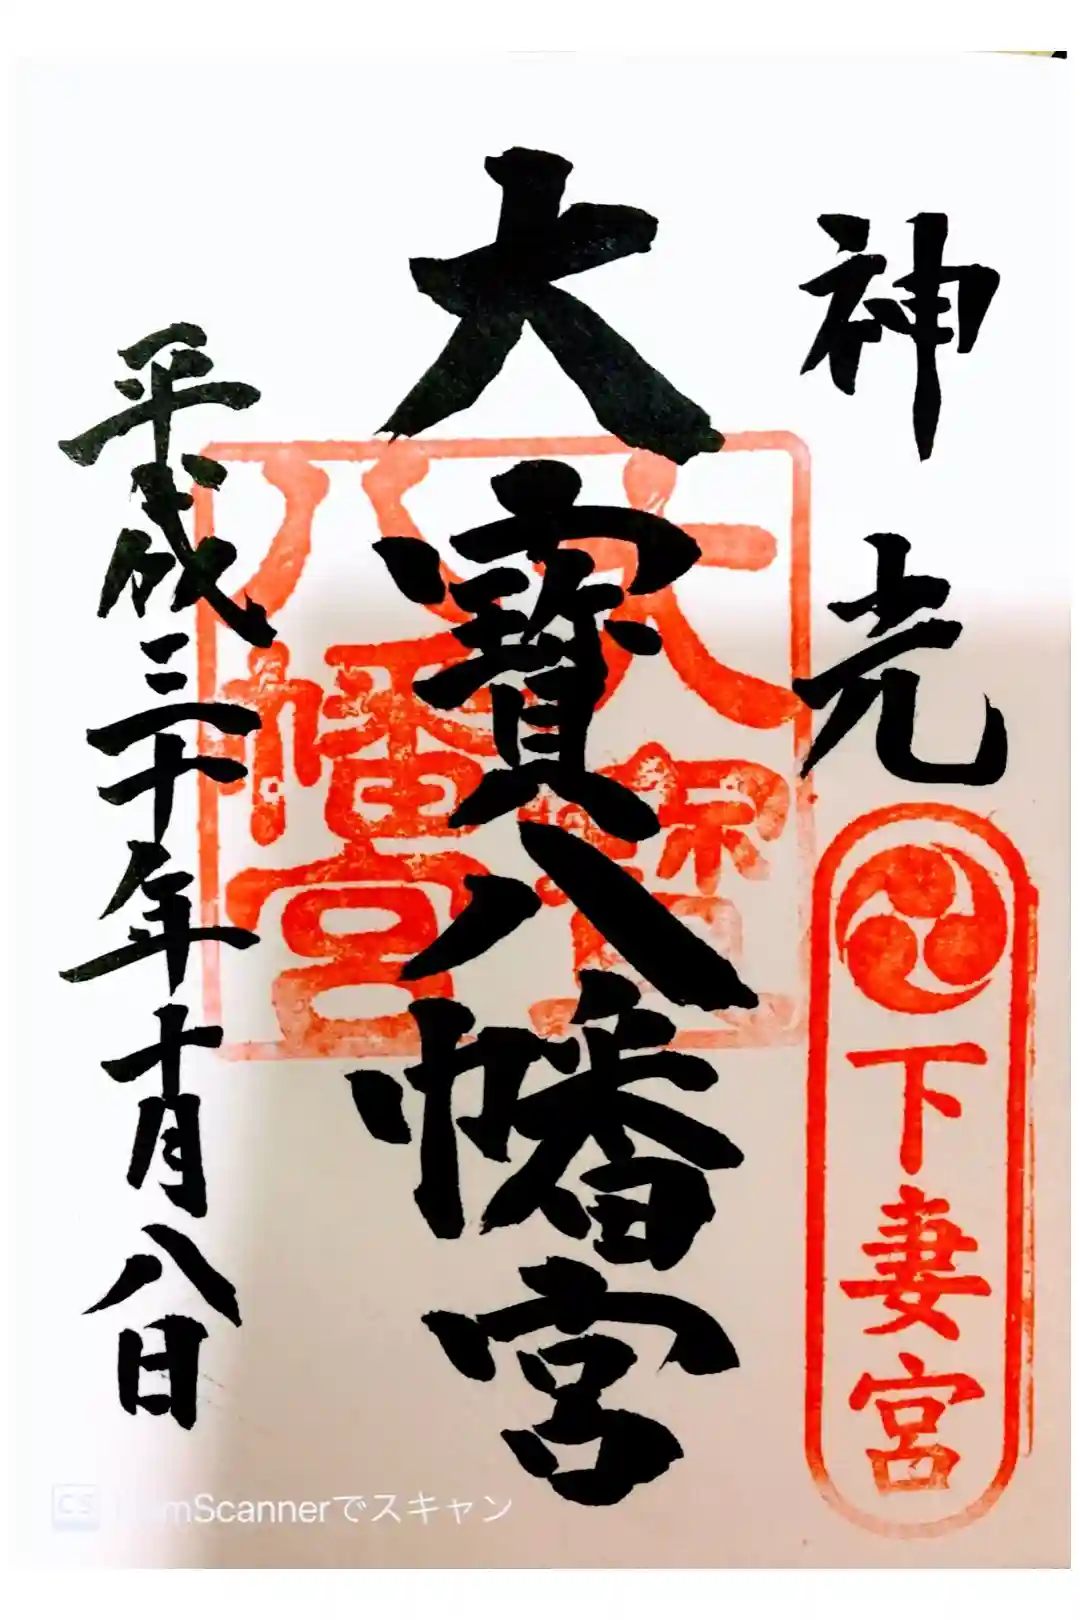 神光
下妻宮
大寶八幡宮
大寶
八幡宮
平成三十年十月八日
CS CamScannerでスキャン